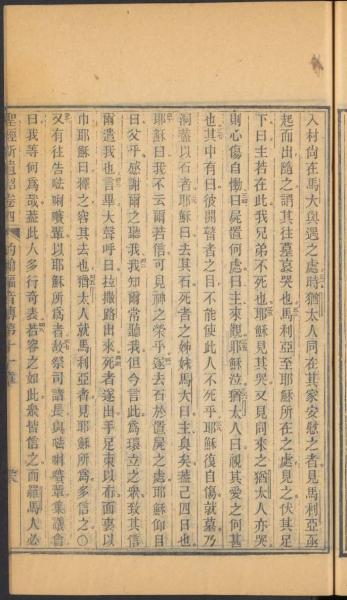 入村尙在馬大與遇之處時猶太人同在其家安慰之者見馬利亞亟
起而出隨之謂其往墓哀哭也馬利亞至耶穌所在之處見之伏其足
下曰主若在此我兄弟不死也耶穌見其哭又見同來之猶太人亦哭
則心傷自慟曰屍置何處曰主來觀耶穌泣猶太人曰視其愛之何甚
也其中有曰彼開瞽者之目不能使此人不死乎耶穌復自傷就墓乃
洞蓋以石者耶穌曰去其石死者之姊妹馬大曰主臭矣蓋已四日也
耶穌曰我不云爾若信可見神之榮乎遂去石於置屍之處耶穌仰目
曰父乎感謝爾之聽我我知爾常聽我但今言此爲環立之衆致其信
爾遣我也言畢大聲呼曰拉撒路出來死者遂出手足束以布面裹以
巾耶穌曰釋之容其去也猶太人就馬利亞者見耶穌所爲多信之〇
又有往告𠵽唎㘔輩以耶穌所爲者故祭司諸長與𠵽唎㘔輩集議會
曰我等何爲哉蓋此人多行奇表若容之如此衆皆信之而羅馬人必
聖經新遺詔卷四 約翰福音傳第十一章